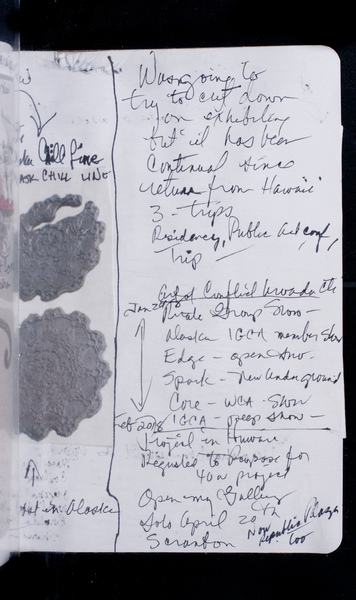 Was going to
try to cut down
on exhibiting
but it has been
continual since
return from Hawaii
3 - trips
Residency, Public Art conf,
Trip
Art of Conflict
Jan 2018
Pirate Group Show -
Alaskan IGCA member show
Edge - open show.
Spark - New Underground
Core - WCA Show
Feb 2018
IGCA - peep show -
Project in Hawaii
Requested to Propose for
40 a project
Open my Gallery
Solo April 20th
Scranton
Now Republic Plaza
too
Chill Line
ASK CHILL LINE
in Alaska